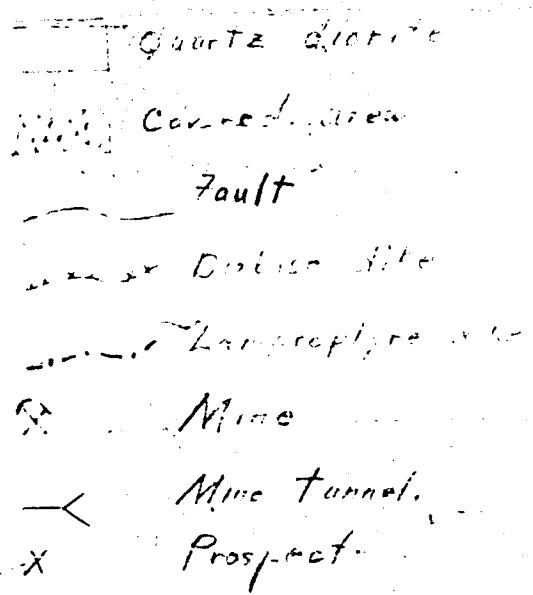 Quartz diorite
Covered area
Fault
Diabase dike
Lamprophyre dike
Mine
Mine tunnel.
Prospect.
X